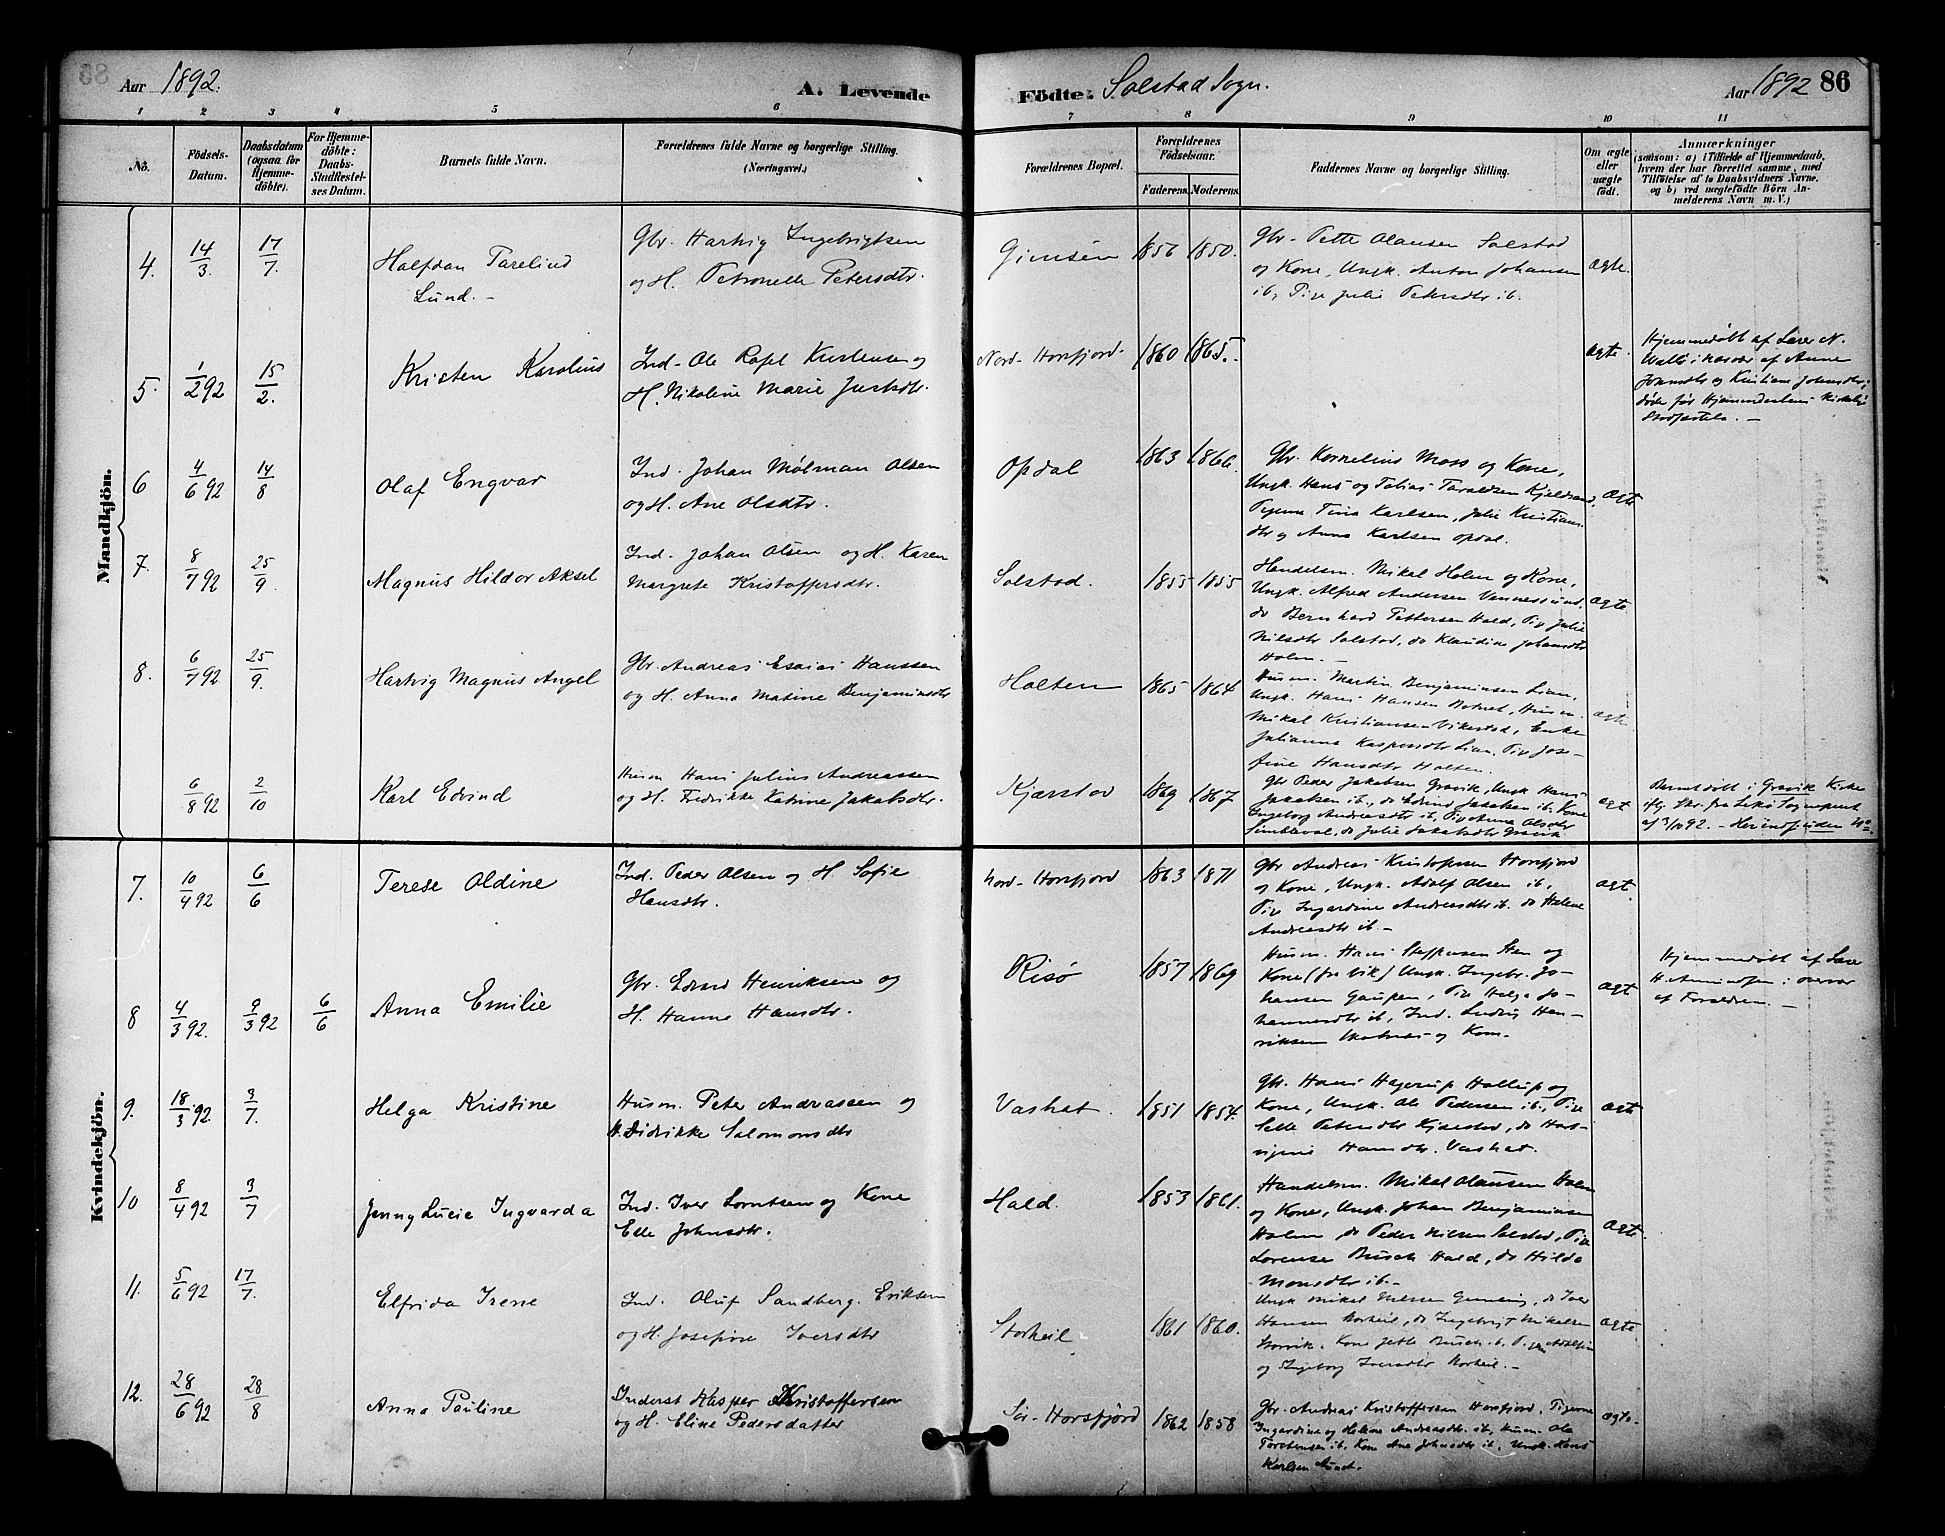 Aar 1892. A. Levende Födte. Solstad Sogn. Aar 1892 86
1 2 3 4 5 6 7 8 9 10 11
No. Födsels-Datum. Daabsdatum (ogsaa for Hjemme-döbte). For Hjemme-döbte: Daabs-Stadfæstel-ses Datum. Barnets fulde Navn. Forældrenes fulde Navne og borgerlige Stilling. (Næringsvei.) Forældrenes Bopæl. Forældrenes Födselsaar. Faderens. Moderens. Faddernes Navne og borgerlige Stilling. Om ægte eller uægte födt. Anmærkninger (saasom: a) i Tilfælde af Hjemmedaab, hvem der har forrettet samme, med Tilföielse af to Daabsvidners Navne, og b) ved uægtefödte Börn An-melderens Navn m. V.)
Mandkjön.
4. 14/3. 17/7. Halfdan Parelius
Lund. -
Gbr. Hartvig Ingebrigtsen
og H. Petronelle Petersdtr.
Gimsen 1856 1850.
Gbr. Peter Olausen Solstad
og Kone, Ungk. Anton Johansen
ib, Pige Julie Petersdtr ib.
ægte.
5. 1/2 92 15/2. Kristen Karolius
Ind. Ole Kristensen og
H. Nikoline Marie Justsdtr.
Nord-Horsfjord. 1860 1865.
ægte.
Hjemmedøbt af Lærer N.
af Anne
Johnsdtr og Kristian Johnsdtr;
døde før Hjemmedaabens kirkelige
Stadfæstelse. -
6 4/6 92 14/8 Olaf Engvar
Ind. Johan Mølman Olsen
og H. Ane Olsdtr.
Opdal 1863 1866.
Gbr. Kornelius Moss og Kone,
Ungk. Hans og Tobias Taraldsen Kjeldsand,
Pigerne Tina Karlsen, Julie Kristians-
dtr og Anna Karlsen Opdal.
ægte
7. 8/7 92 25/9. Magnus Hildor Aksel
Ind. Johan Olsen og H. Karen
Margrete Kristoffersdtr.
Solstad. 1855 1855
Handelsm. Mikal Holm og Kone,
Ungk. Alfred Andersen Vennesund,
do Bernhard Pettersen Hald, Pige Julie
Nilsdtr Solstad, do Klaudine Johansdtr
Holm. -
ægte
8. 6/7 92. 25/9. Hartvig Magnus Angel
Gbr. Andreas Esaias Hanssen
og H. Anna Matine Benjaminsdtr
Holten 1865 1864
Husm. Martin Benjaminsen Lian,
Ungk. Hans Hansen Botnet, Husm.
Mikal Kristiansen Vikestad, Enke
Julianna Kaspersdtr Lian, Pige Jose-
fine Hansdtr Holten.
ægte
6/8 92 2/10 Karl Edvind
Husm Hans Julius Andreassen
og H. Fredrikke Katrine Jakobsdtr.
Kjærstov 1869 1867
Gbr Peder Jakobsen Gravik, Ungk Hans
Jakobsen ib., do Edvind Jakobsen ib. Kone
Ingeborg Andreasdtr ib, Pige Anna Olsdtr
do Julie Jakobsdtr Gravik
ægte
Barnet døbt i Gravik Kirke
iflg. Skr. fra Leka Sogneprest
af 3/10 92. -
Kvindekjön.
7. 10/4 92 6/6 Terese Oldine
Ind. Peder Olsen og H Sofie
Hansdtr.
Nord-Horsfjord 1863 1871
Gbr Andreas Kristoffersen Horsfjord
og Kone, Ungk. Adolf Olsen ib.
Pige Ingardine Andreasdtr ib. do Helene
Andreasdtr ib -
ægt.
8 4/3 92. 9/3 92 6/6 Anna Emilie
Gbr. Edvard Henriksen og
H. Hanna Hansdtr.
Risø 1857 1869
Husm. Hans Steffensen og
Kone (fra Vik) Ungk. Ingebr. Jo-
hansen Gaupen, Pige Helga Jo-
hannesdtr ib, Ind. Ludvig Hen-
riksen og Kone.
ægt
Hjemmedøbt af Lærer
H. Amundsen; overvær
af Forældrene. -
9. 18/3 92. 3/7. Helga Kristine
Husm. Peter Andreassen og
H. Didrikke Salomonsdtr
Vashat. 1851 1854.
Gbr. Hans Hagerup Hallup og
Kone, Ungk. Ole Pedersen ib., Pige
Petersdtr Kjærstov, do Hart-
vigine Hansdtr. Vashat.
ægte
10 8/4 92 3/7 Jenny Lucie Ingvarda
Ind. Iver Lorntsen og Kone
Elle Johnsdtr.
Hald. 1853 1861.
Handelsm. Mikal Olausen Holm
og Kone, Ungk. Johan Benjaminsen
Holm, do Peder Nilsen Solstad, Pige
Lorense Busch Hald, do Hilda
Monsdtr ib. -
ægte.
11. 5/6 92 17/7. Elfrida Irene
Ind. Oluf Sandberg Eriksen
og H. Josefine Iversdtr
Storheil 1861 1860.
Ungk Mikal Nilssen do Iver
Hansen do Ingebrigt Mikalsen
Storvik. Kone Jette Busch ib. Pigerne Adolfine
og Ingeborg Iversdtr -
ægte
12. 28/6 92 28/8 Anna Pauline
Inderst Kasper Kristoffersen
og H. Eline Pedersdatter
Sør-Horsfjord 1862 1858
Gbr. Andreas Kristoffersen Horsfjord, Pigerne
Ingardine og Helene Andreasdtr. ib, Husm. Ole
Torstensen ib. Kone Ane Johnsdtr ib. Ungk. Hans
Karlsen Aunet.
ægte.